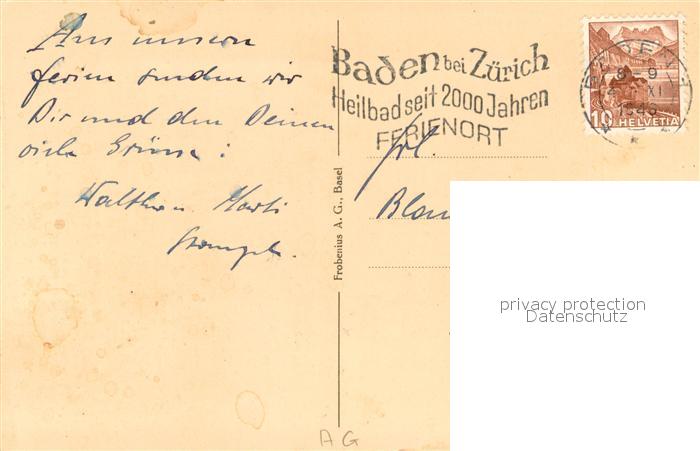 Aus unsern
ferien senden wir
Dir und den Deinen
viele Grüsse!
Baden bei Zürich
Heilbad seit 2000 Jahren
FERIENORT
BADEN
8-9
XI
10 HELVETIA
Frl.
Frobenius A. G., Basel
privacy protection
Datenschutz
AG